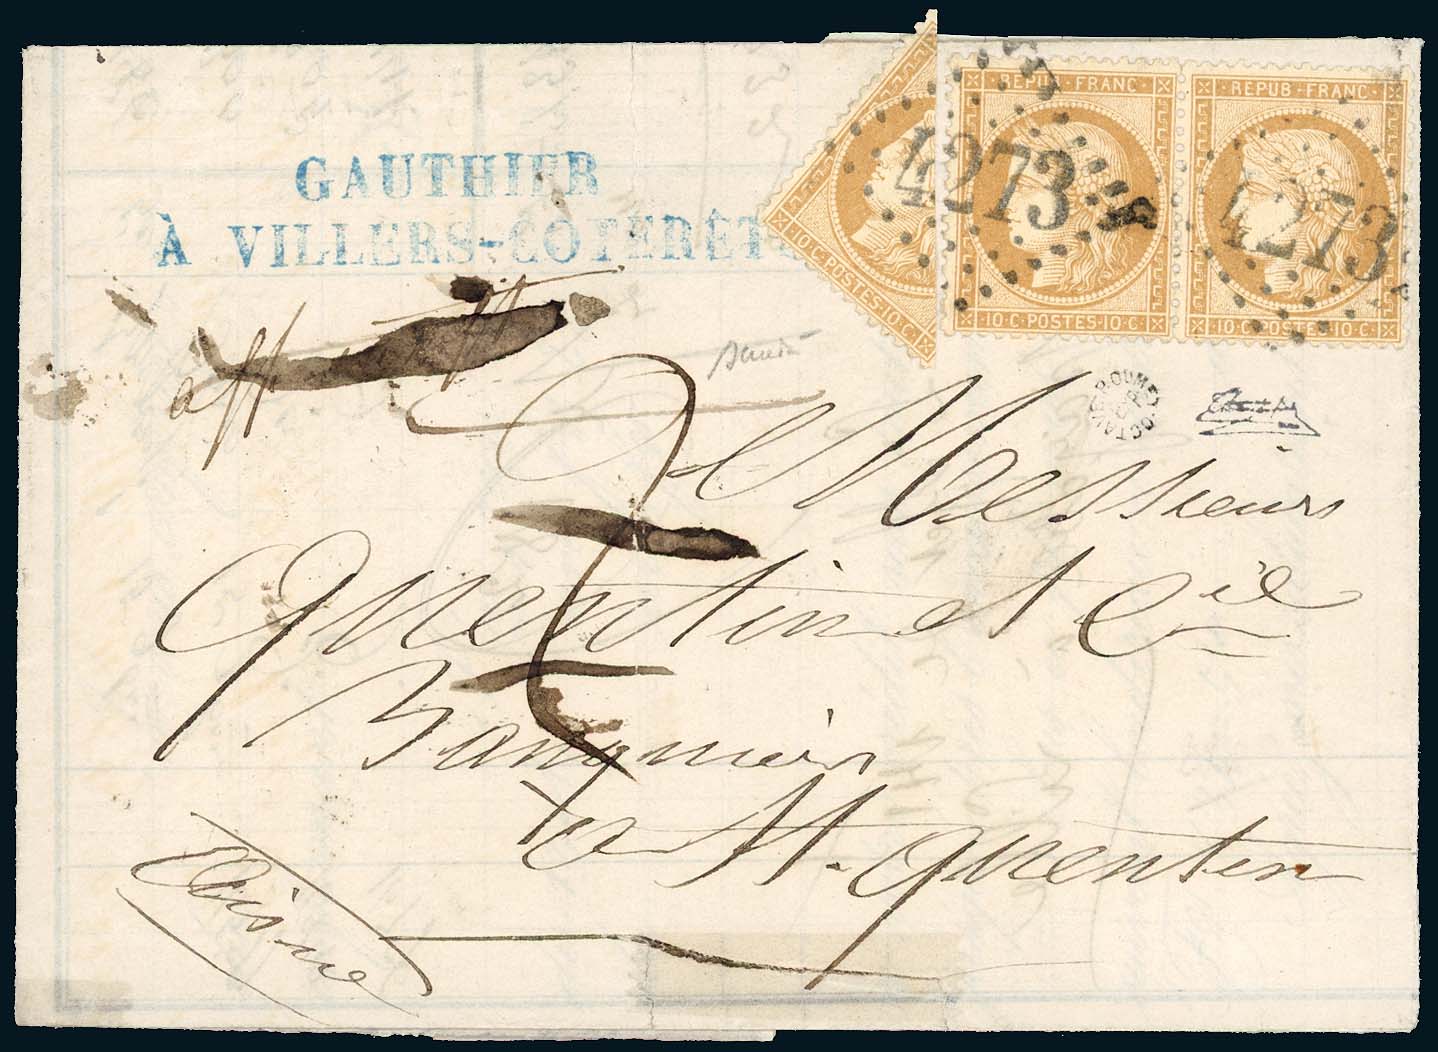 GAUTHIER
À VILLERS-COTERÊTS
REPUB · FRANC
10·C·POSTES·10·C
REPUB · FRANC
10·C·POSTES·10·C
10·C·POSTES·10·C
4273
4273
aff
OCTAVE ROUMET
Messieurs
Quentin et Cie
Banquiers
a St. Quentin
Aisne